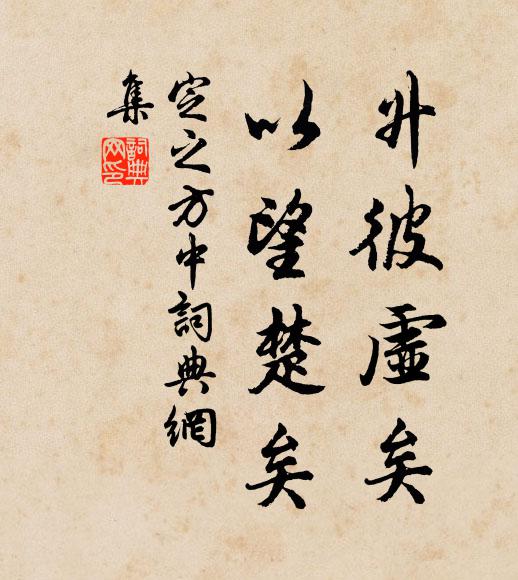 升彼虛矣
以望楚矣
定之方中詞典網
集
詞典
網印